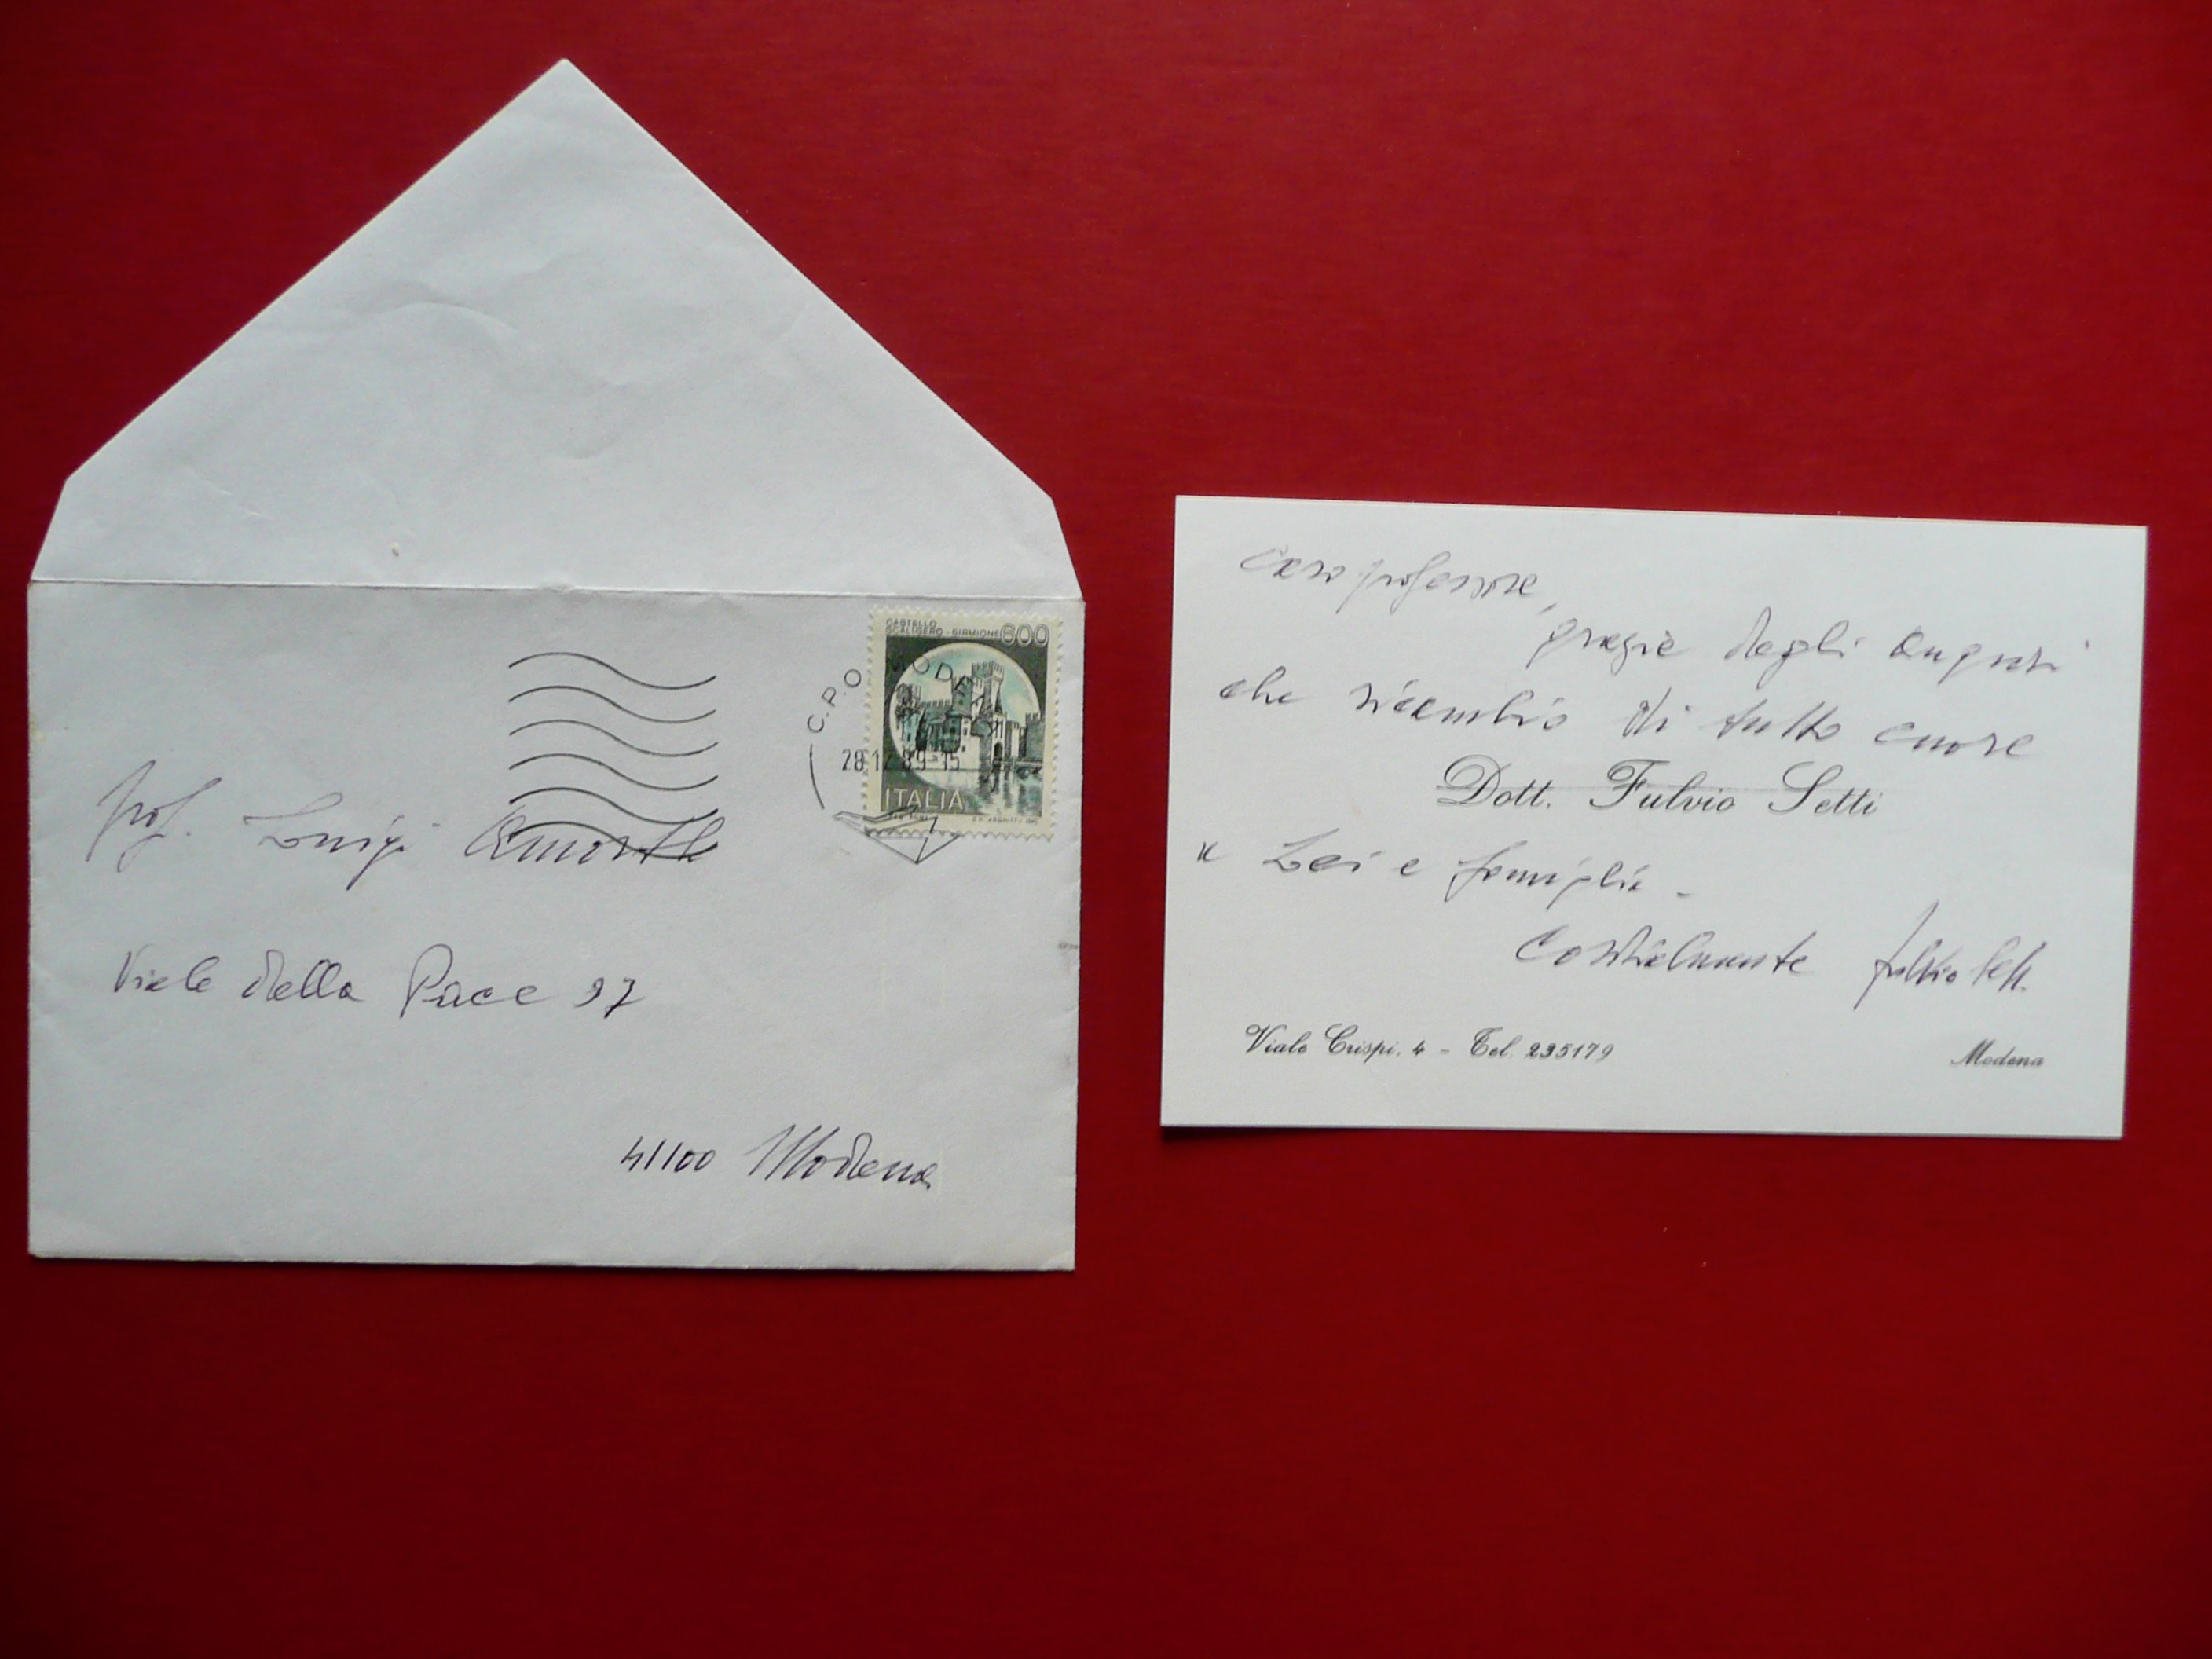 CASTELLO
SCALIGERO - SIRMIONE 600
C.P.O. MODENA
28 12 89-15
ITALIA
Prof. Luigi Amorth
Viale della Pace 97
41100 Modena
Caro professore,
grazie degli auguri
che ricambio di tutto cuore
Dott. Fulvio Setti
a Lei e famiglia -
Cordialmente Fulvio Setti
Viale Crispi, 4 - Tel. 235179
Modena